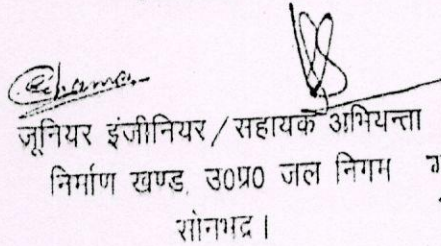 जूनियर इंजीनियर/सहायक अभियन्ता
निर्माण खण्ड, उ०प्र० जल निगम
सोनभद्र।